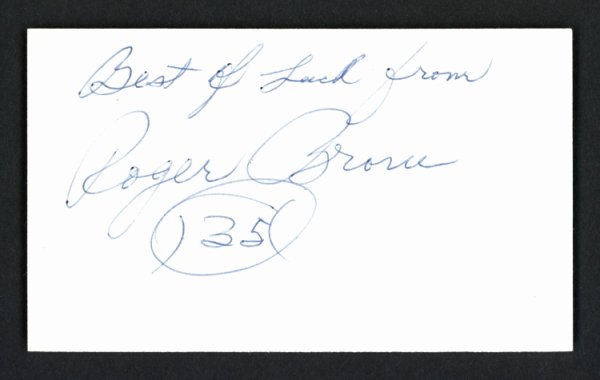 Best of Luck from
Roger Brown
(35)